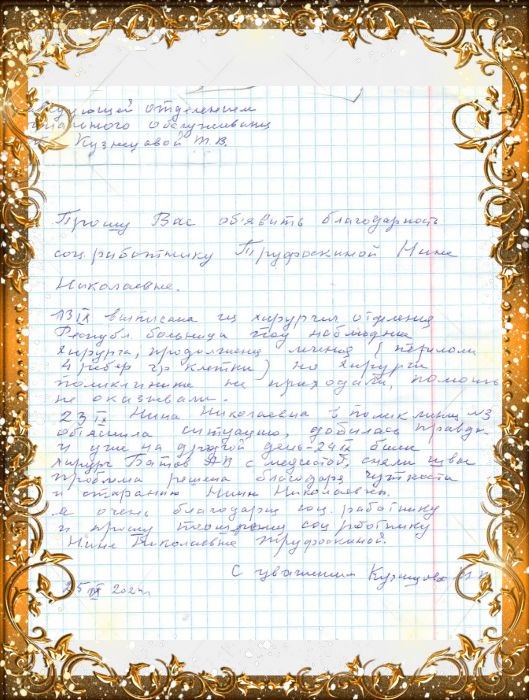 отделением
обслуживания
Кузнецовой Т.В.
Прошу Вас объявить благодарность
соц.работнику Труфоскиной Нине
Николаевне.
13 IX выписана из хирургич отделения
больница под наблюдение
хирурга, продолжение лечения (перелом
4 ребер гр клетки) но хирурги
поликлиники не приходили, помощь
не оказывали.
23 IX Нина Николаевна в поликлинике №3
объяснила ситуацию, добилась правды
и уже на другой день - 24 IX были
хирург Батов АП с медсестой, сняли швы
проблема решена благодаря чуткости
и старанию Нины Николаевны.
я очень благодарна соц. работнику
и прошу соц работнику
Нине Николаевне Труфоскиной.
С уважением Кузнецова
25 IX